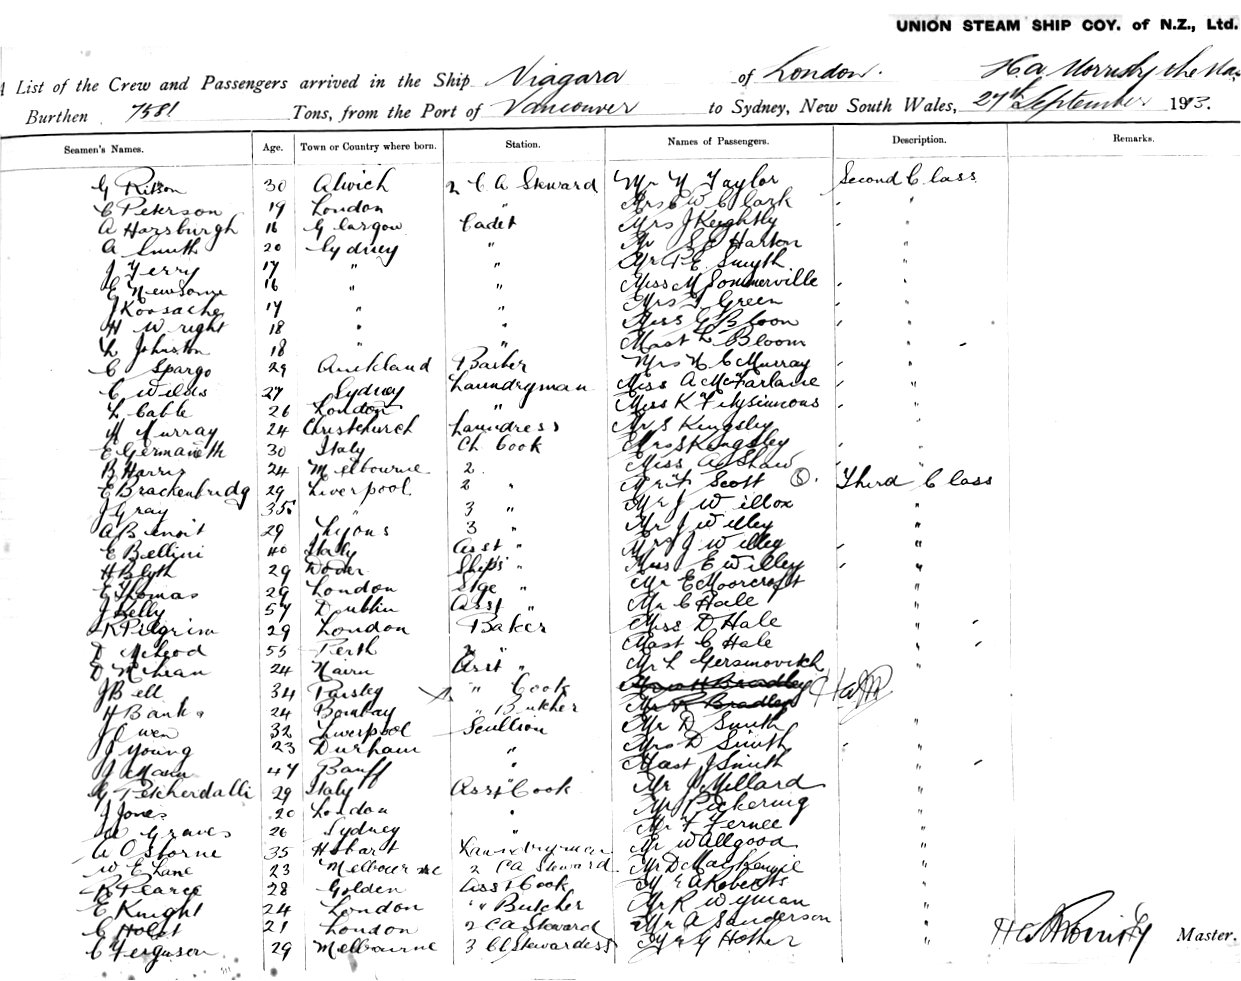 UNION STEAM SHIP COY. of N.Z., Ltd.
A List of the Crew and Passengers arrived in the Ship Niagara of London. H a Morrisby the Mas
Burthen 7581 Tons, from the Port of Vancouver to Sydney, New South Wales, 27th September 1913.
Seamen's Names. Age. Town or Country where born. Station. Names of Passengers. Description. Remarks.
G Ritson 30 Alwich 2 C A Steward Mr N Taylor Second Class
C Peterson 19 London " Mrs C W Clark "
A Horsburgh 16 Glasgow Cadet Mrs J Keightly "
A Smith 20 Sydney " Mr S E Harton "
J Terry 17 " " Mr P E Smyth "
E Newsome 16 " " Miss M Sommerville "
J Koosache 17 " " Mrs Green "
H Wright 18 " " Miss G Bloom "
L Johnston 18 " Mast L Bloom "
C Spargo 29 Auckland Barber Mrs N C Murray "
C Wilds 27 Sydney Laundryman Miss A McFarlane "
L Cable 26 London " Miss K Fitzsimmons "
M Murray 24 Christchurch Laundress Mr S Kingsley "
E Germaneth 30 Italy Ch Cook Mrs S Kingsley "
B Harris 24 Melbourne 2 " Miss A Shaw "
E Brackenbridg 29 Liverpool 2 " Mr Scott S. Third Class
J Gray 35 " 3 " Mr J Willox "
A Benoit 29 Lyons 3 " Mr J Willey "
E Bellini 40 Italy Asst " Mrs J Willey "
H Blyth 29 Dover Ships " Miss E Willey "
E Thomas 29 London Stge " Mr E Moorcroft "
J Kelly 57 Dublin Asst " Mr C Hale "
R Pilgrim 29 London Baker Miss D Hale "
D McLeod 55 Perth 2 " Mast C Hale "
D McLean 24 Nairn Asst " Mr L Gersinovitch "
J Bell 34 Paisley " Cook Bradley HAM
H Banks 24 Bombay " Butcher Mr R Bradley
J Owen 32 Liverpool Scullion Mr D Smith "
J Young 23 Durham " Mrs D Smith "
J Mann 47 Banff " Mast J Smith "
G Petcherdalli 29 Italy Asst Cook Mr J Millard "
J Jones 20 London " Mr Pickering "
Graves 26 Sydney " Mr F Fernee "
A Osborne 35 Hobart Laundryman Mr W Allgood "
W E Lane 23 Melbourne 2 C A Steward Mr D MacKenzie "
R Pearce 28 Golden Asst Cook M E A Roberts "
E Knight 24 London " Butcher Mr R Wyman "
C Holst 21 London 2 C A Steward Mr A Sanderson "
C Ferguson 29 Melbourne 3 Cl Stewardess Mr G Hother " H A Morrisby Master.